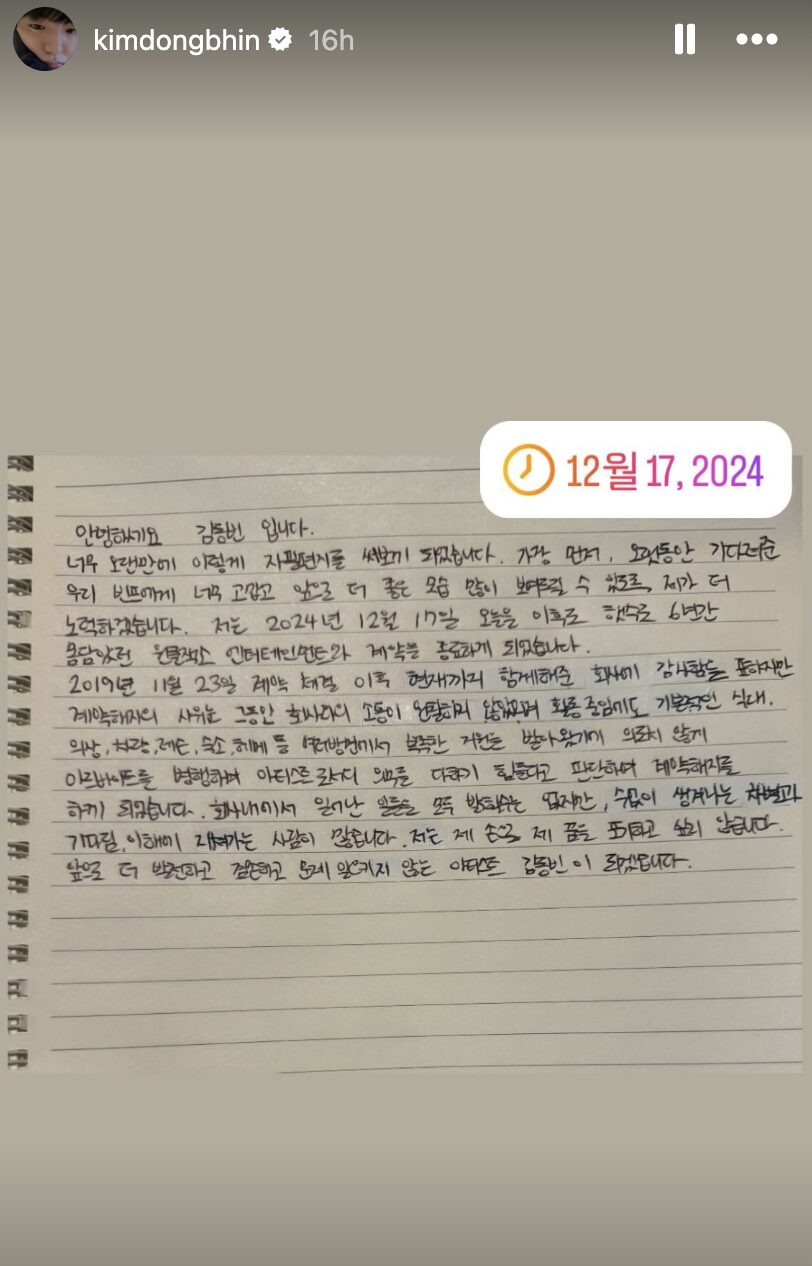 kimdongbhin 16h
12월 17, 2024
안녕하세요 김동빈 입니다.
너무 오랜만에 이렇게 자필편지를 써보게 되었습니다. 가장 먼저, 오랫동안 기다려준
우리 빈프에게 너무 고맙고 앞으로 더 좋은 모습 많이 보여드릴 수 있도록, 제가 더
노력하겠습니다. 저는 2024년 12월 17일 오늘을 이후로 햇수로 6년간
몸담았던 원플랙소 엔터테인먼트와 계약을 종료하게 되었습니다.
2019년 11월 23일 계약 체결 이후 현재까지 함께해준 회사에 감사함을 표하지만
계약해지의 사유는 그동안 회사와의 소통이 원활하지 않았으며 활동 중임에도 기본적인 식대,
의상, 차량, 레슨, 숙소, 헤메 등 여러방면에서 부족한 지원을 받아왔기에 의도치 않게
아르바이트를 병행하며 아티스트로서의 의무를 다하기 힘들다고 판단하여 계약해지를
하게 되었습니다. 회사내에서 일어난 일들을 모두 밝힐수는 없지만, 수없이 생겨나는 차별과
기다림, 이해에 지쳐가는 사람이 많습니다. 저는 제 손으로 제 꿈을 포기하고 싶지 않습니다.
앞으로 더 발전하고 겸손하고 문제 일으키지 않는 아티스트 김동빈이 되겠습니다.